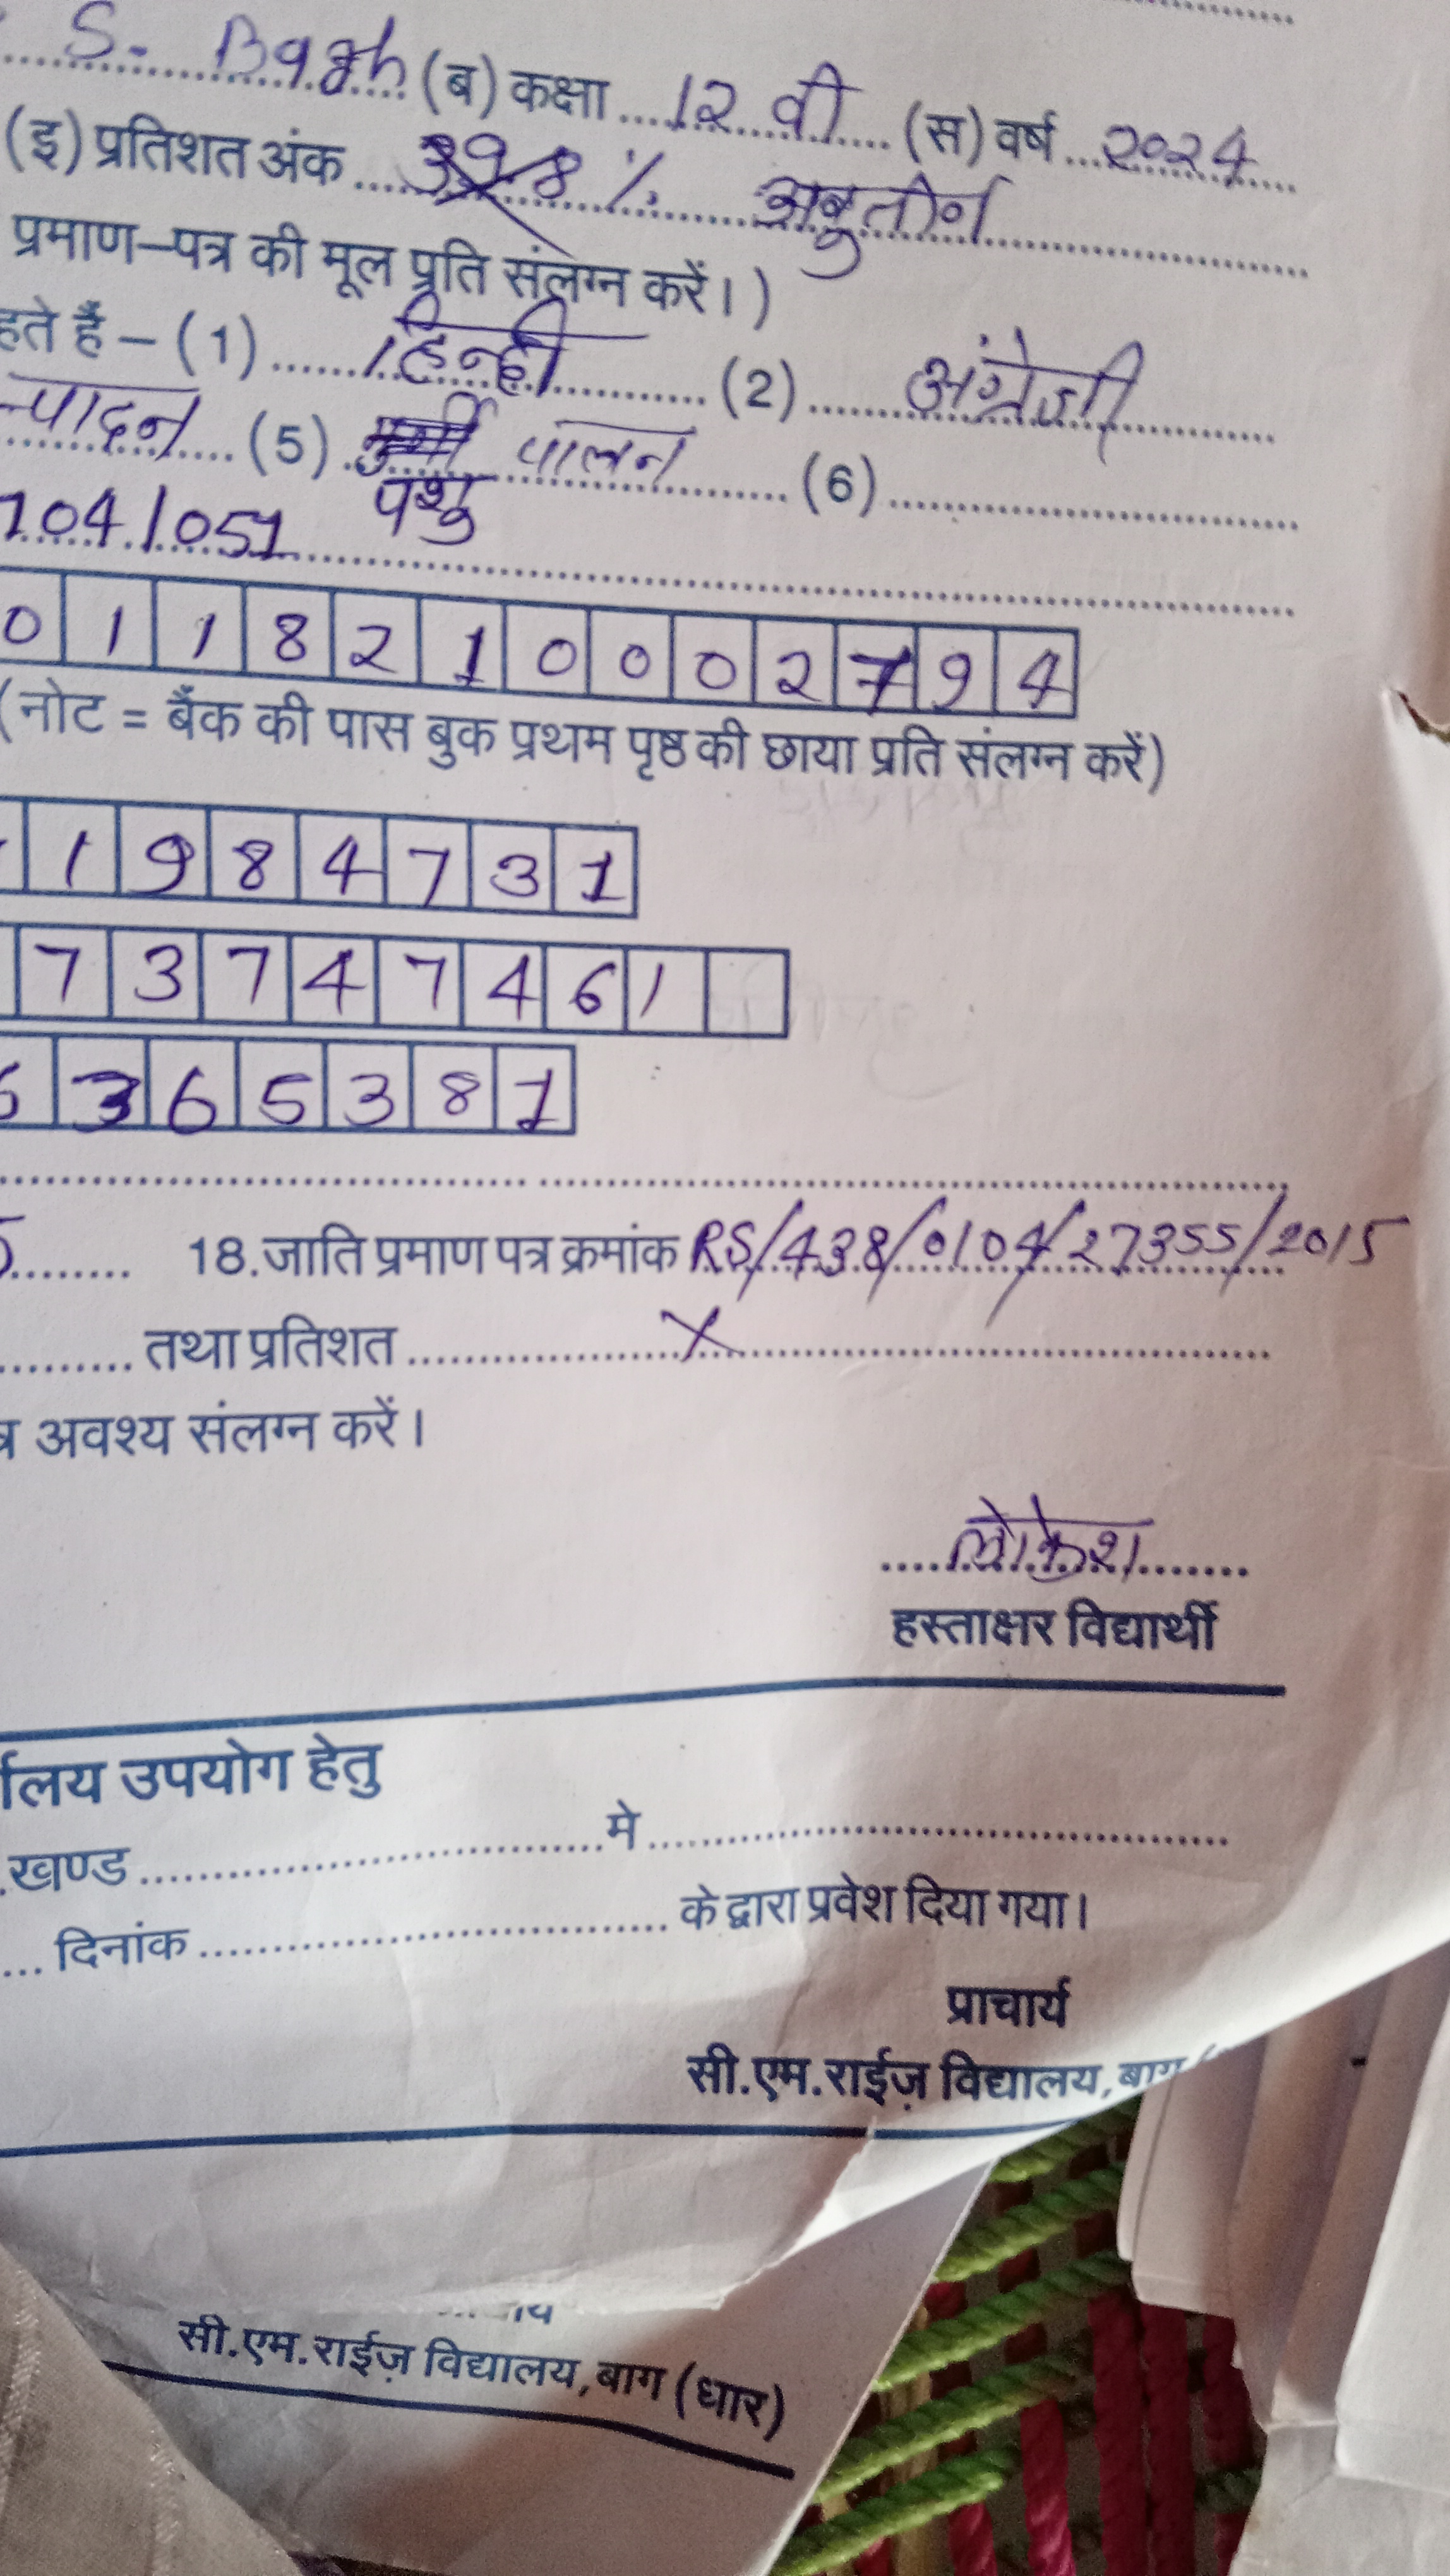 S. Bagh (ब) कक्षा 12 वी (स) वर्ष 2024
(इ) प्रतिशत अंक %
प्रमाण-पत्र की मूल प्रति संलग्न करें।)
हते हैं - (1) हिन्दी (2) अंग्रेजी
पादन (5) पालन (6)
पशु
104/051
0 1 1 8 2 1 0 0 0 2 7 9 4
(नोट = बैंक की पास बुक प्रथम पृष्ठ की छाया प्रति संलग्न करें)
1 9 8 4 7 3 1
7 3 7 4 7 4 6 1
3 6 5 3 8 1
18.जाति प्रमाण पत्र क्रमांक RS/438/0104/27355/2015
तथा प्रतिशत X
अवश्य संलग्न करें।
लोकेश
हस्ताक्षर विद्यार्थी
र्यालय उपयोग हेतु
खण्ड मे
दिनांक के द्वारा प्रवेश दिया गया।
प्राचार्य
सी.एम.राईज़ विद्यालय, बाग
सी.एम.राईज़ विद्यालय, बाग (धार)